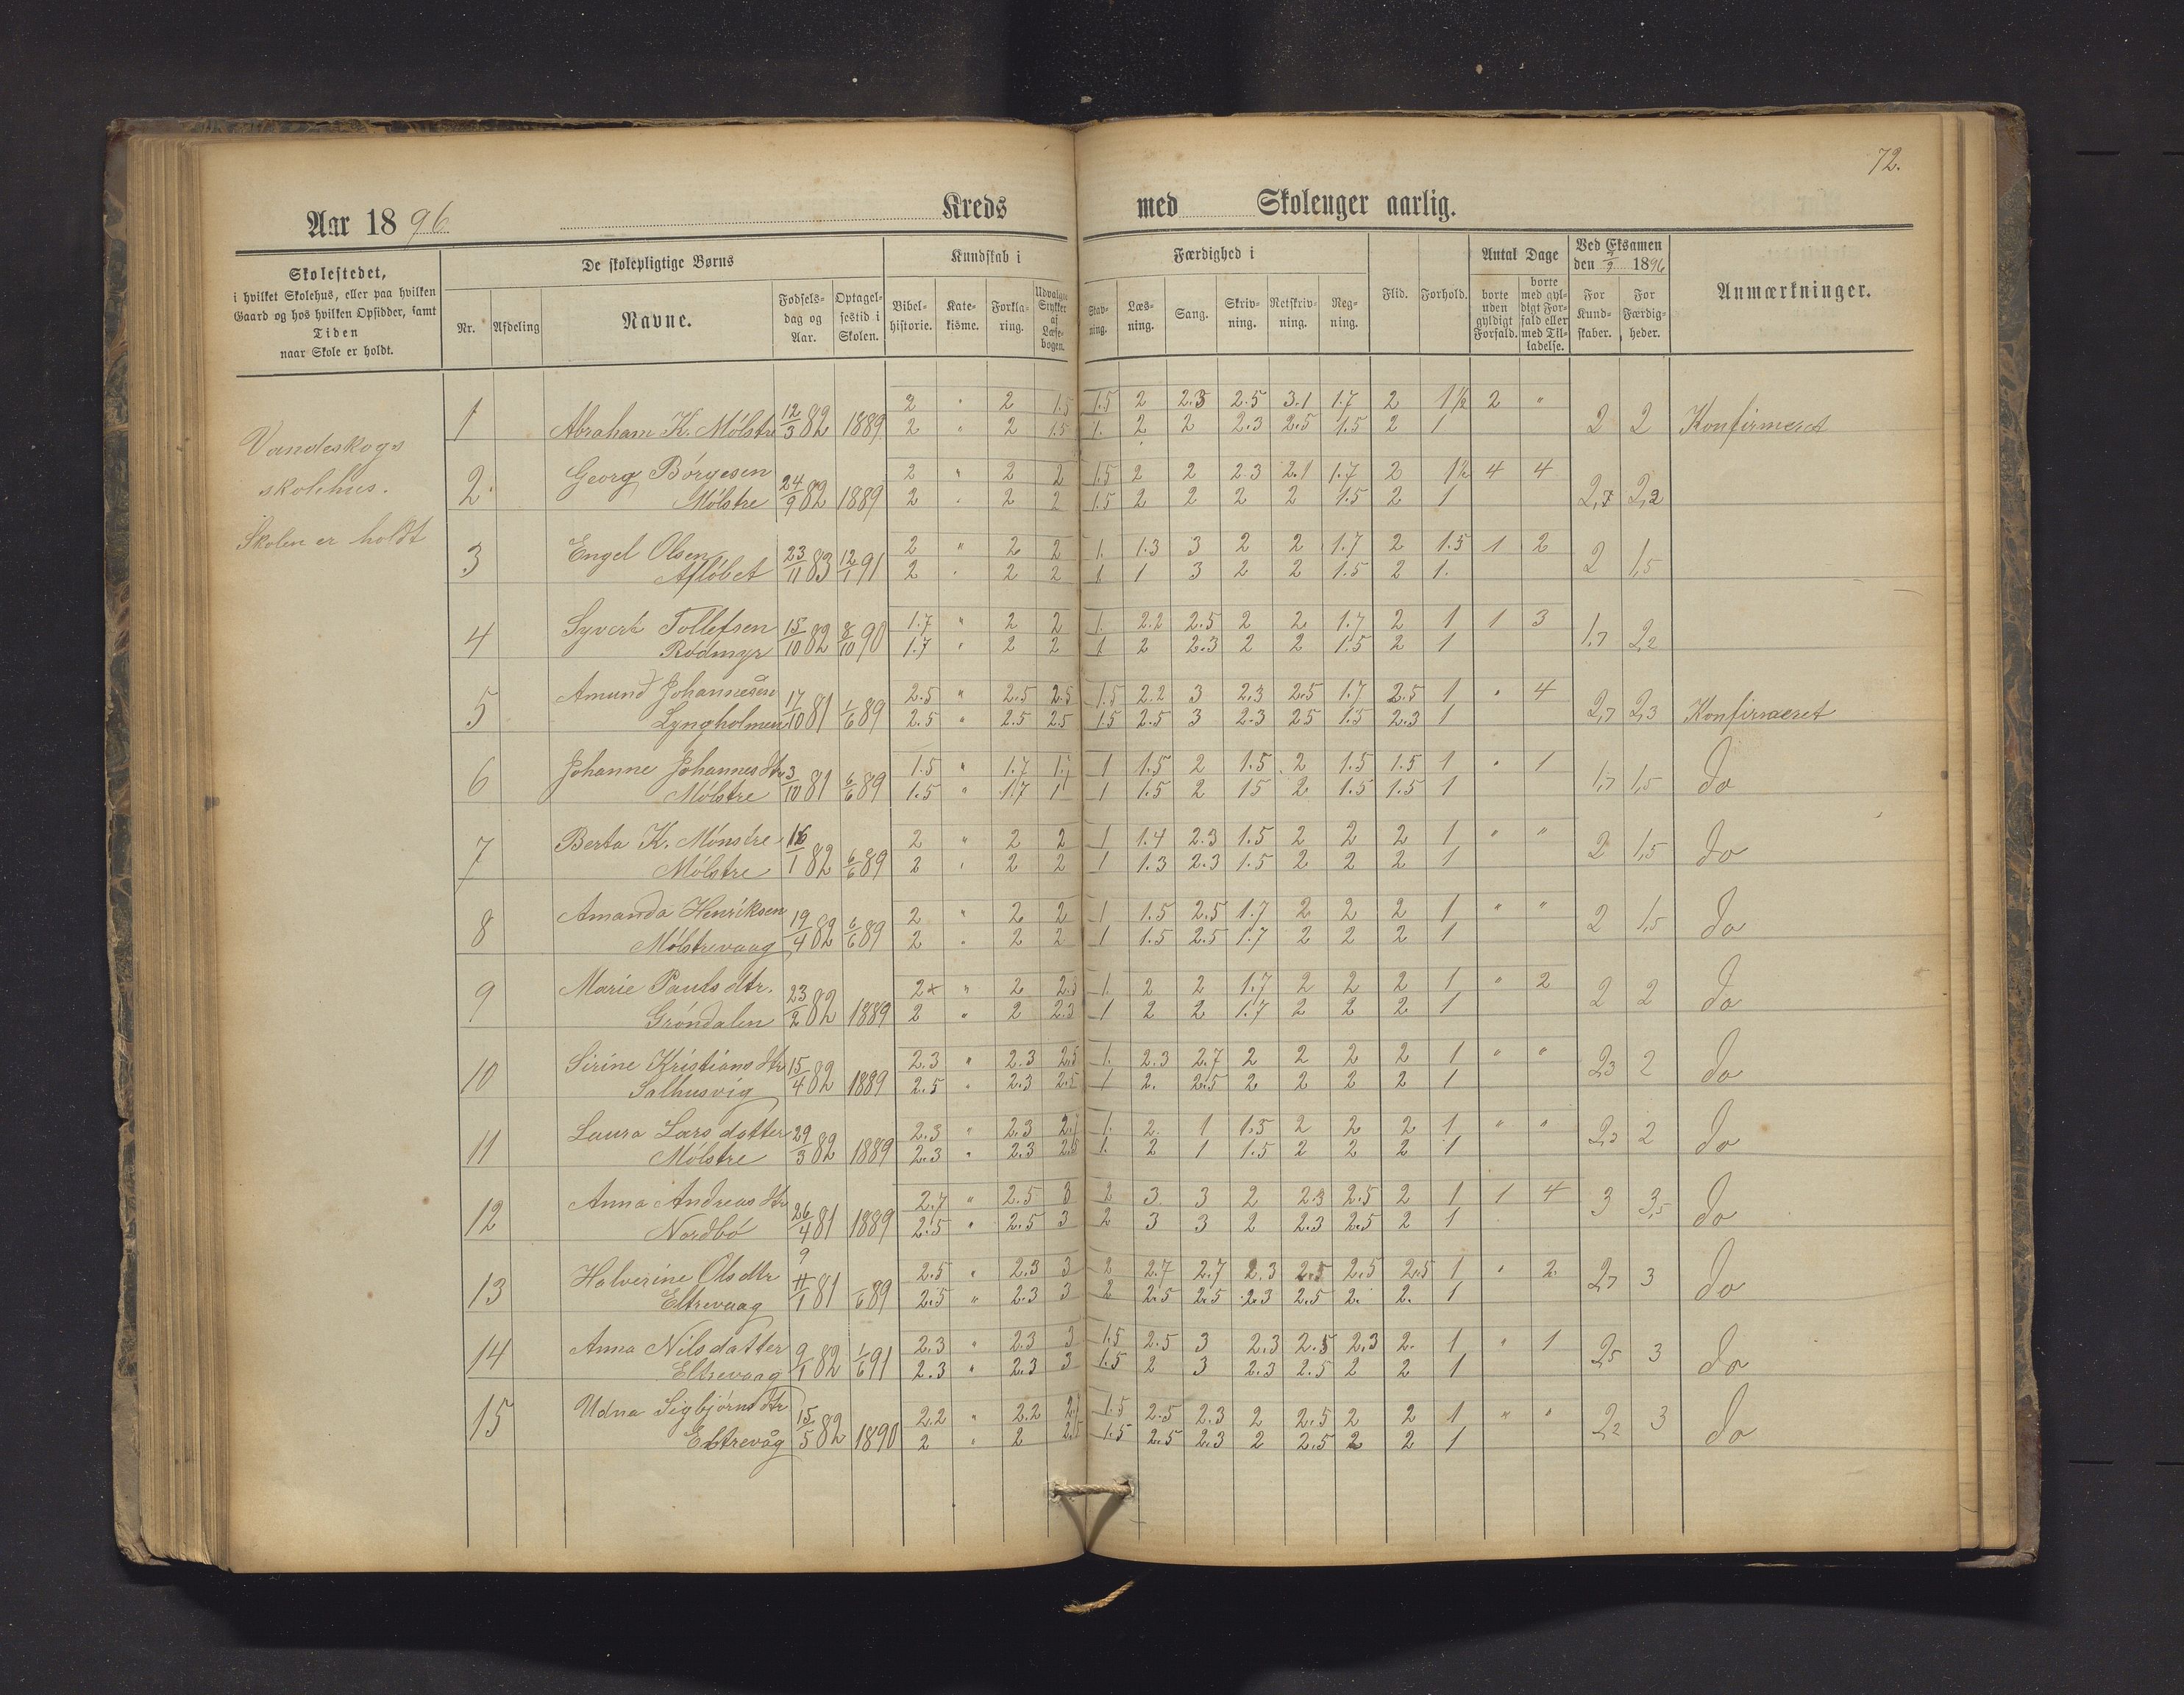 72.
Aar 1896 Kreds med Skolenger aarlig.
Skolestedet,
i hvilket Skolehus, eller paa hvilken
Gaard og hos hvilken Opsidder, samt
Tiden
naar Skole er holdt.
De skolepligtige Børns
Nr. Afdeling Navne. Fødsels-dag og Aar. Optagel-sestid i Skolen.
Kundskab i
Bibel-historie. Kate-kisme. Forkla-ring. Udvalgte Stykker af Læse-bogen.
Færdighed i
Stav-ning. Læs-ning. Sang. Skriv-ning. Retskriv-ning. Reg-ning. Flid. Forhold.
Antal Dage
borte uden gyldigt Forfald. borte med gyl-digt For-fald eller med Til-ladelse.
Ved Eksamen
den 1896
For Kund-skaber. For Færdig-heder.
Anmærkninger.
Vandeskogs
skolehus.
Skolen er holdt
2 " 2 1.5 1.5 2 2.3 2.5 3.1 1.7 2 1½ 2 "
1 Abraham K. Mølstre 12/3 82 1889 2 " 2 1.5 1. 2 2 2.3 2.5 1.5 2 1 2 2 Konfirmeret
Georg Börgesen 2 " 2 2 1.5 2 2 2.3 2.1 1.7 2 1½ 4 4
2 Mölstre 24/9 82 1889 2 " 2 2 1.5 2 2 2 2 1.5 2 1 2,7 2,2
Engel Olsen 2 " 2 2 1. 1.3 3 2 2 1.7 2 1.5 1 2
3 Aflöbet 23/11 83 12/1 91 2 " 2 2 1 1 3 2 2 1.5 2 1. 2 1,5
Syvert Tollefsen 1.7 " 2 2 1. 2.2 2.5 2 2 1.7 2 1 1 3
4 Rødmyr 15/10 82 8/10 90 1.7 " 2 2 1 2 2.3 2 2 1.5 2 1 1,7 2,2
Amund Johannesen 2.5 " 2.5 2.5 1.5 2.2 3 2.3 2.5 1.7 2.5 1 " 4
5 Lyngholmen 17/10 81 1/6 89 2.5 " 2.5 2.5 15 2.5 3 2.3 25 1.5 2.3 1 2,7 2,3 Konfirmeret
Johanne Johannesdtr 1.5 " 1.7 1.7 1 1.5 2 1.5 2 1.5 1.5 1 " 1
6 Mölstre 3/10 81 6/6 89 1.5 " 1.7 1 1 1.5 2 15 2 1.5 1.5 1 1,7 1,5 do
Berta K. Mönstre 2 " 2 2 1 1.4 2.3 1.5 2 2 2 1 " "
7 Mölstre 16/1 82 6/6 89 2 " 2 2 1 1.3 2.3 1.5 2 2 2 1 2 1,5 do
Amanda Henriksen 2 " 2 2 1 1.5 2.5 1.7 2 2 2 1 " "
8 Mölstrevaag 19/4 82 6/6 89 2 " 2 2 1 1.5 2.5 1.7 2 2 2 1 2 1,5 do
Marie Paulsdtr. 2 " 2 2.3 1. 2 2 1.7 2 2 2 1 " 2
9 Gröndalen 23/2 82 1889 2 " 2 2.3 1 2 2 1.7 2 2 2 1 2 2 do
Sirine Kristiansdtr 2.3 " 2.3 2.5 1. 2.3 2.7 2 2 2 2 1 " "
10 Salhusvig 15/4 82 1889 2.5 " 2.3 2.5 1 2. 2.5 2 2 2 2 1 2,3 2 do
Laura Larsdatter 2.3 " 2.3 1. 2. 1 1.5 2 2 2 1 " "
11 Mölstre 29/3 82 1889 2.3 " 2.3 2.5 1. 2 1 1.5 2 2 2 1 2,3 2 do
Anna Andreasdtr 2.7 " 2.5 3 2 3 3 2 2.3 2.5 2 1 1 4
12 Nordbö 26/4 81 1889 2.5 " 2.5 3 2 3 3 2 2.3 2.5 2 1 3 3,5 do
Halverine Olsdtr 2.5 " 2.3 3 2 2.7 2.7 2.3 2.5 2.5 2.5 1 " 2
13 Eltrevaag 11/1 81 1/6 89 2.5 " 2.3 3 2 2.5 2.5 2.3 2.5 2. 2. 1 2,7 3 do
Anna Nilsdatter 2.3 " 2.3 3 1.5 2.5 3 2.3 2.5 2.3 2. 1 " 1
14 Eltrevaag 9/1 82 1/6 91 2.3 " 2.3 3 1.5 2 3 2.3 2.5 2 2 1 2,5 3 do
Udna Sigbjörnsdtr 2.2 " 2.2 1.5 2.5 2.3 2 2.5 2 2 1 " "
15 Eltrevåg 15/5 82 1890 2 " 2 2.5 1.5 2.5 2.3 2 2.5 2 2 1 2,2 3 do